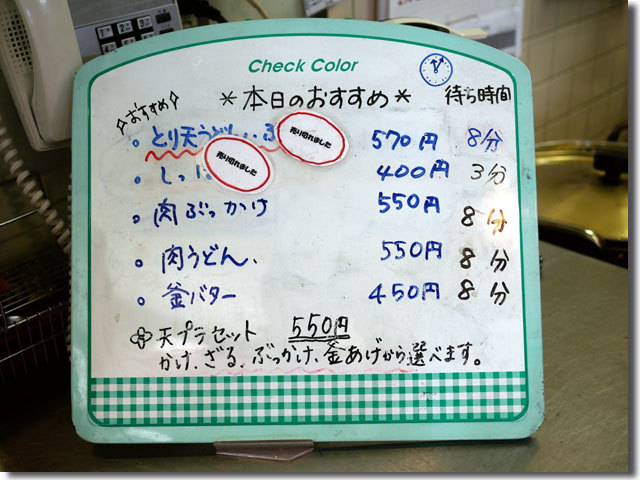 Check Color
おすすめ
*本日のおすすめ* 待ち時間
・とり天うどん・・ 570円 8分
売り切れました
売り切れました
・しっ 400円 3分
・肉ぶっかけ 550円 8分
・肉うどん. 550円 8分
・釜バター 450円 8分
天プラセット 550円
かけ、ざる、ぶっかけ、釜あげから選べます。